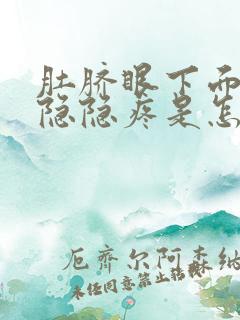 肚脐眼下面
隐隐疼是怎
厄齐尔阿森纳
未经同意禁止转载